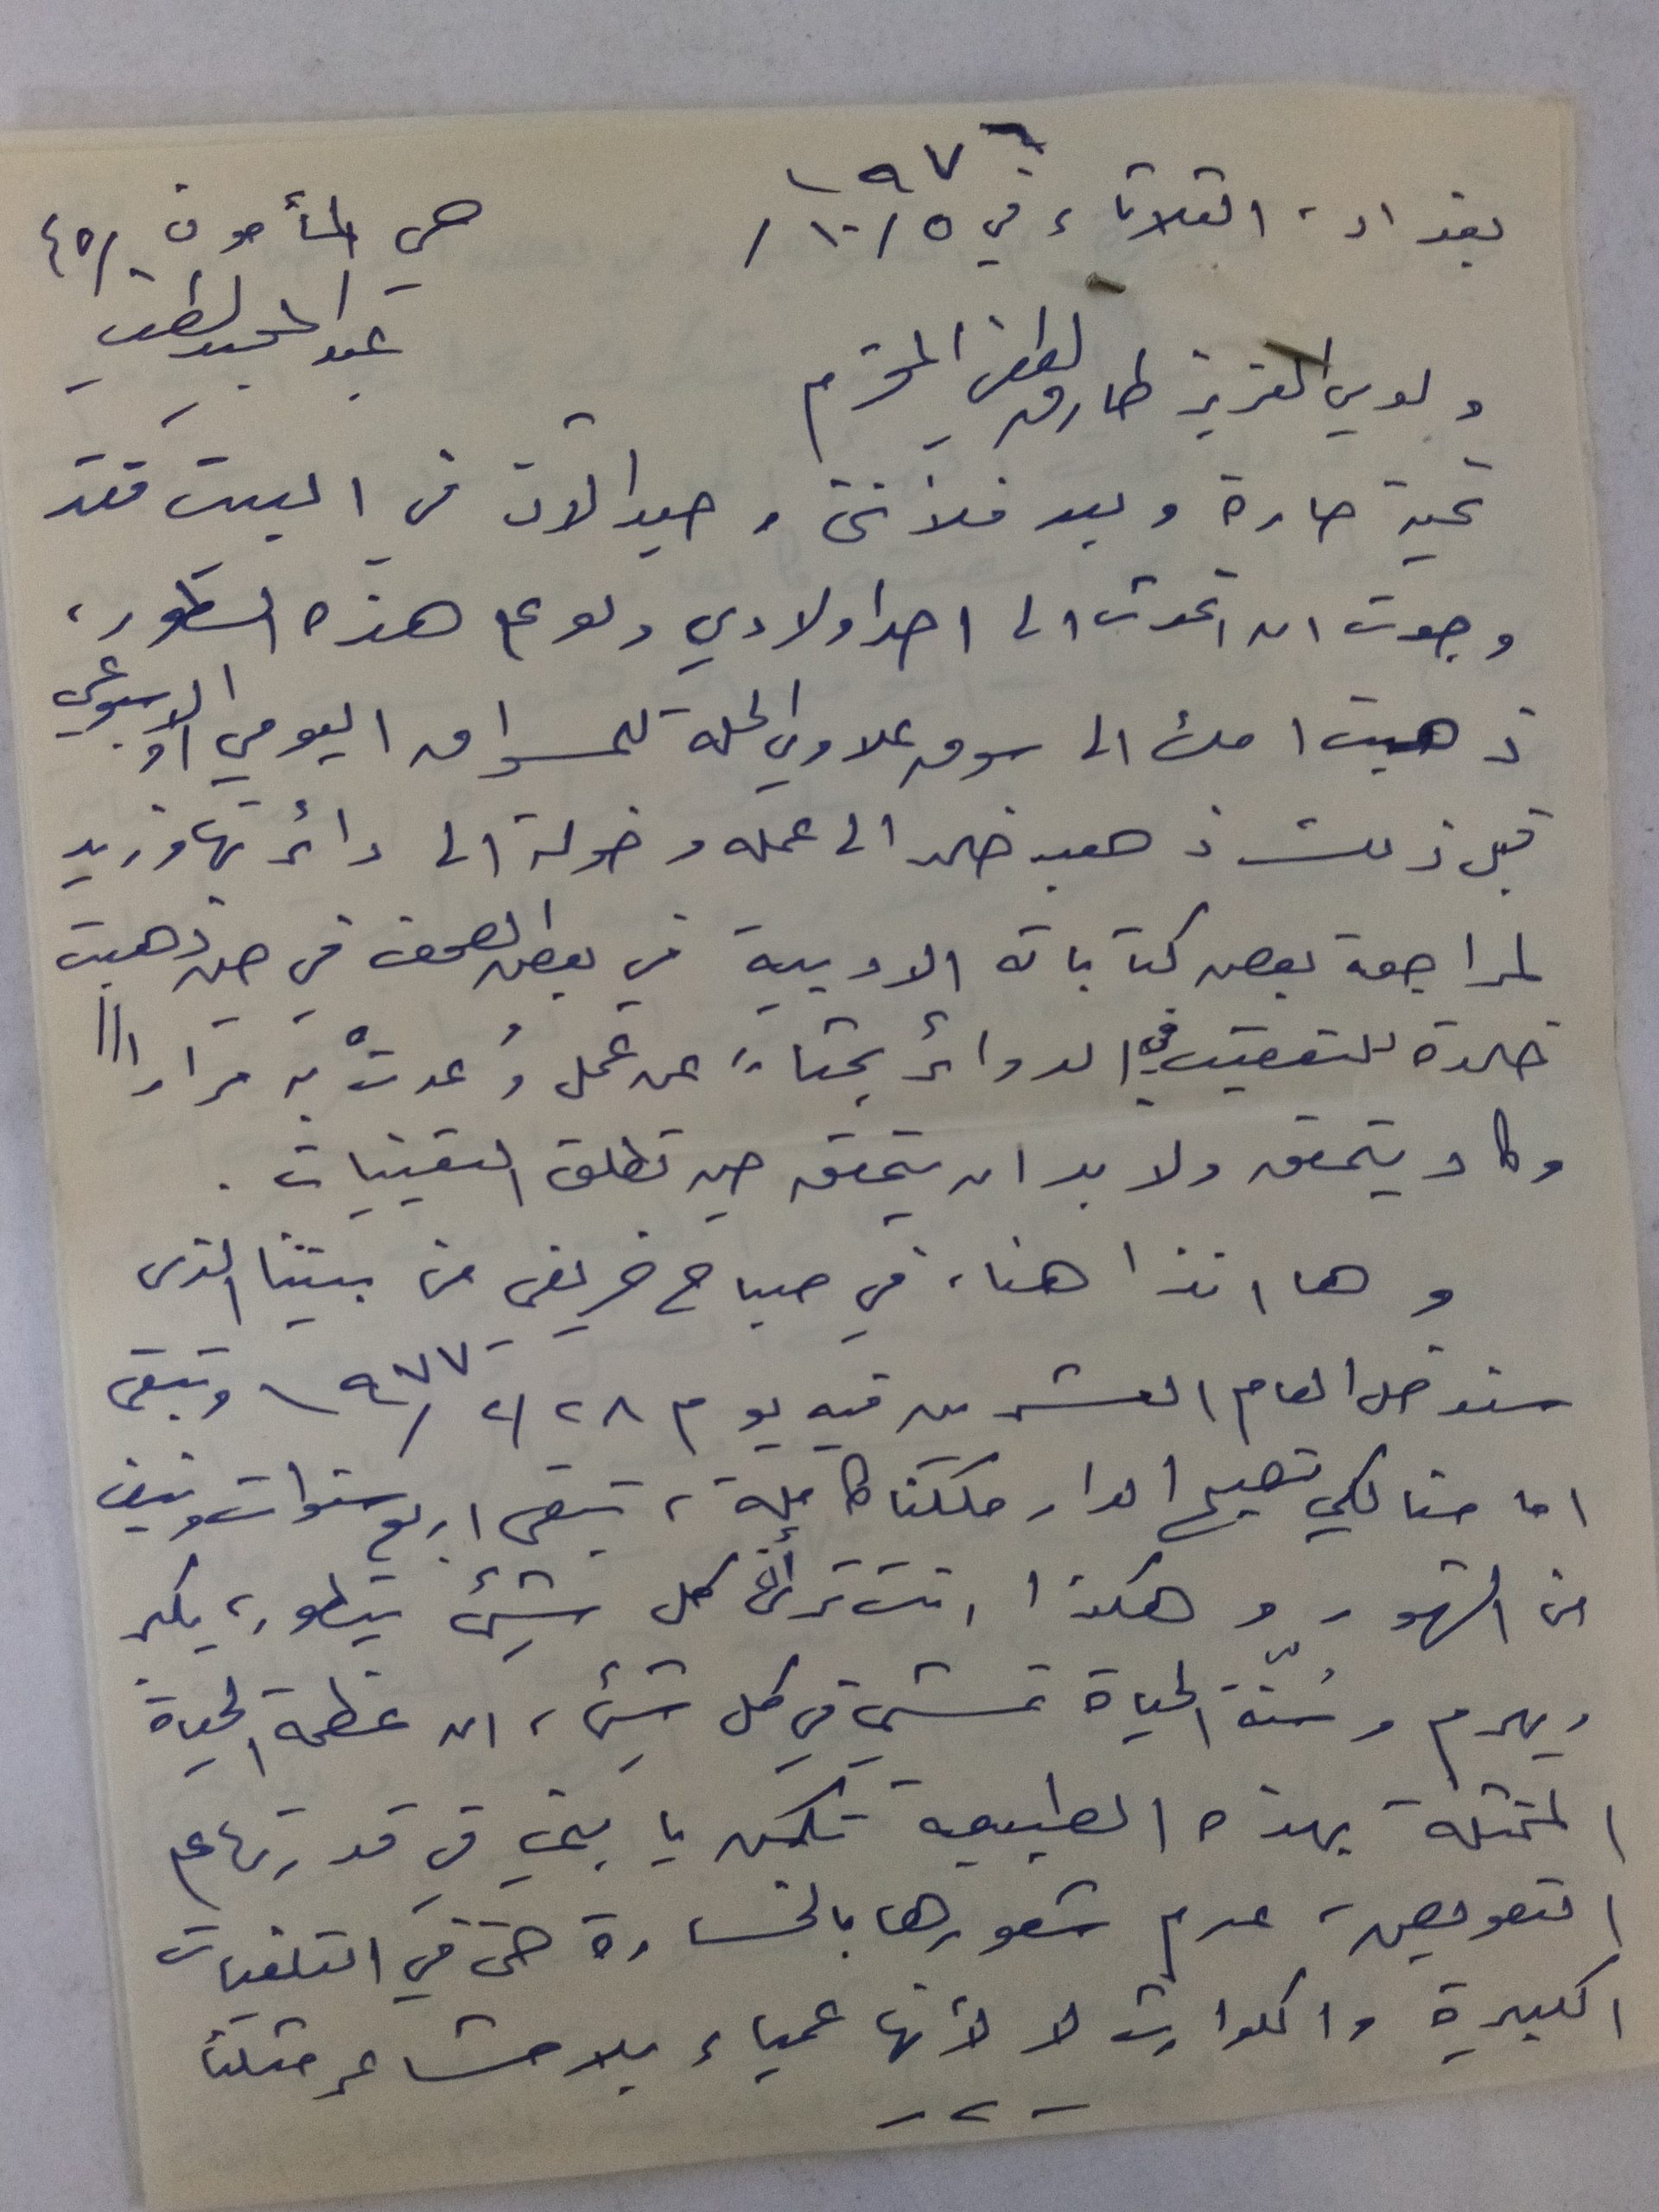 بغداد، الثلاثاء في ٥/١٠/١٩٧٦
حي المأمون
عبدالمجيد لطفي
ولدي العزيز طارق لطفي المحترم
تحية حارة وبعد فلأنني وحيد الآن في البيت فقد
وجدت ان اتحدث الى احد اولادي ولو عبر هذه السطور،
ذهبت امك الى سوق علاوي الحلة للمسواق اليومي او الاسبوعي
قبل ذلك ذهب خالد الى عمله وخولة الى دائرتها وزيد
لمراجعة بعض كتاباته الادبية في بعض الصحف في حين ذهبت
خالدة للتعقيب في الدوائر بحثاً عن عمل وُعدتْ به مراراً!!
وكاد يتحقق ولا بد ان يتحقق حين تطلق التعيينات .
وها انذا هنا، في صباح خريفي من بيتنا الذي
سندخل العام العشرين فيه يوم ٢٨/٢/١٩٧٧ وتبقى
امامنا لكي تصبح الدار ملكنا كاملة، تبقى اربع سنوات ونيف
من الشهور وهكذا انت ترى أن كل شيئ يتطور، يكبر
ويهرم وسُنّة الحياة تمشي في كل شيئ، ان عظمة الحياة
المتمثلة بهذه الطبيعة تكمن يا بني في قدرتها على
التعويض، عدم شعورها بالخسارة حتى في التلفيات
الكبيرة والكوارث لا لأنها عمياء بلا مشاعر مثلنا
-٢-